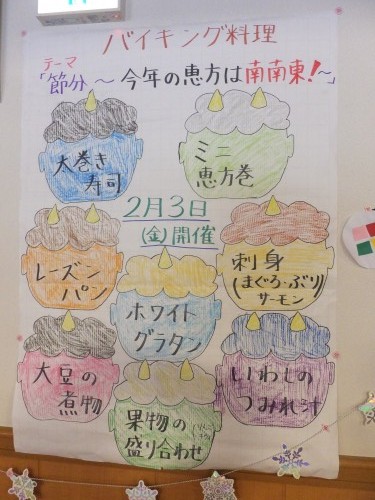 バイキング料理
テーマ
「節分 ～ 今年の恵方は南南東!～」
太巻き
寿司
ミニ
恵方巻
2月3日
(金)開催
レーズン
パン
刺身
(まぐろ・ぶり
サーモン
ホワイト
グラタン
大豆の
煮物
いわしの
つみれ汁
果物の
盛り合わせ